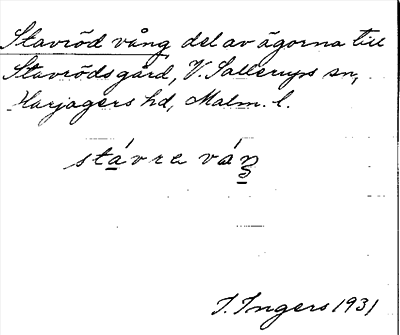 Stavröd vång, del av ägorna till
Stavröds gård, V. Sallerups sn,
Harjagers hd, Malm. l.
stávre váŋ
I. Ingers 1931